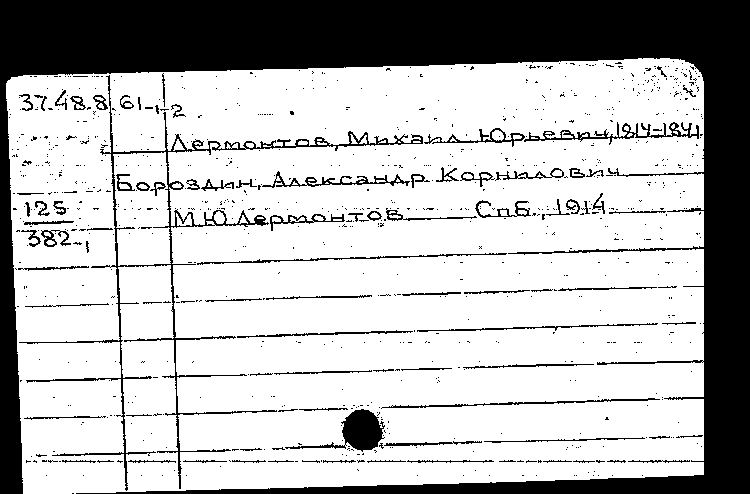 37.48.8.61-1-2
Лермонтов, Михаил Юрьевич, 1814-1841
Бороздин, Александр Корнилович
125
М.Ю.Лермонтов СпБ., 1914
382-1